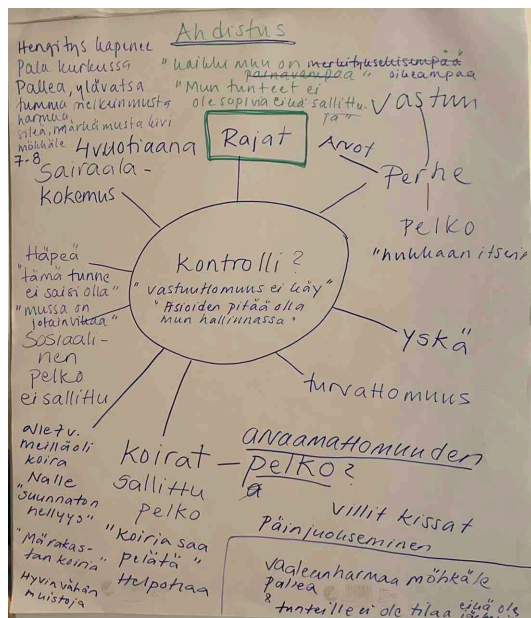 Ahdistus
Hengitys kapenee
Pala kurkussa
Pallea, ylävatsa
tumma melkein musta
harmaa
sileä, märkä musta kivi
möhkäle
7-8
"kaikki muu on merkityksellisempää
painavampaa" oikeampaa
"Mun tunteet ei
ole sopivia eikä sallittu-
ja"
Vastuu
Rajat
Arvot
Perhe
Pelko
"hukkaan itseni"
4vuotiaana
Sairaala-
kokemus
Kontrolli?
"vastuuttomuus ei käy"
"Asioiden pitää olla
mun hallinnassa"
Häpeä
"tämä tunne
ei saisi olla"
"mussa on
jotain vikaa"
Sosiaali-
nen
pelko
ei sallittu
yskä
turvattomuus
alle 7v.
meillä oli
koira
Nalle
"suunnaton
hellyys"
"Mä rakas-
tan koiria"
Hyvin vähän
muistoja
Koirat
Sallittu
pelko
"Koiria saa
pelätä"
Helpottaa
arvaamattomuuden
pelko?
villit kissat
Päin juokseminen
vaaleanharmaa möhkäle
pallea
&
tunteille ei ole tilaa eikä ole